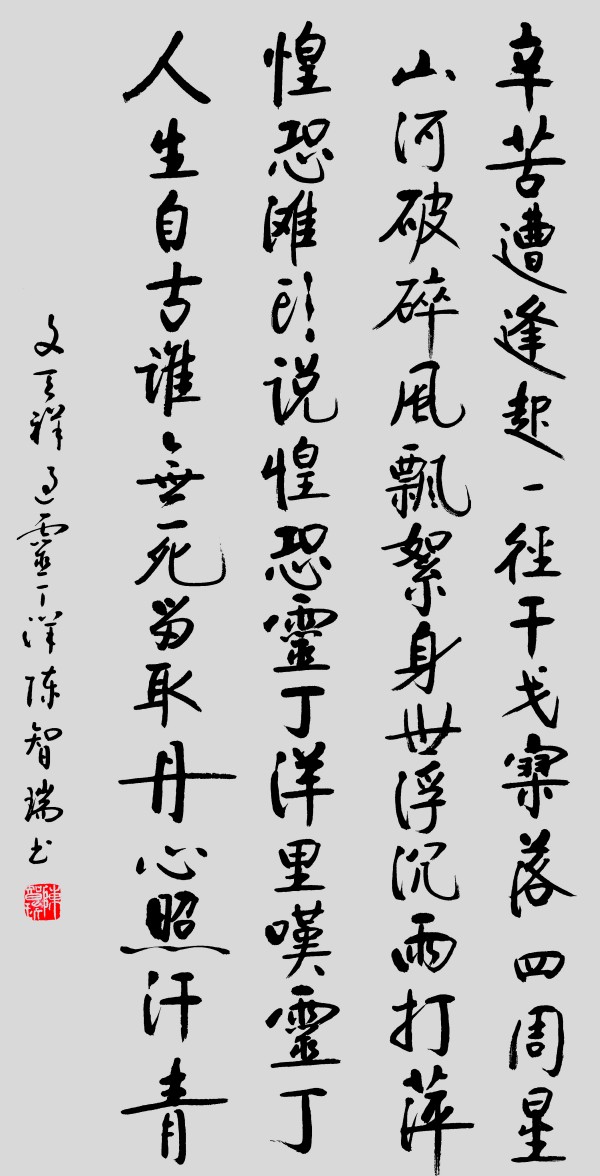 辛苦遭逢起一径干戈寥落四周星
山河破碎风飘絮身世浮沉雨打萍
惶恐滩头说惶恐靈丁洋里嘆靈丁
人生自古谁無死留取丹心照汗青
文天祥过靈丁洋陈智瑞书